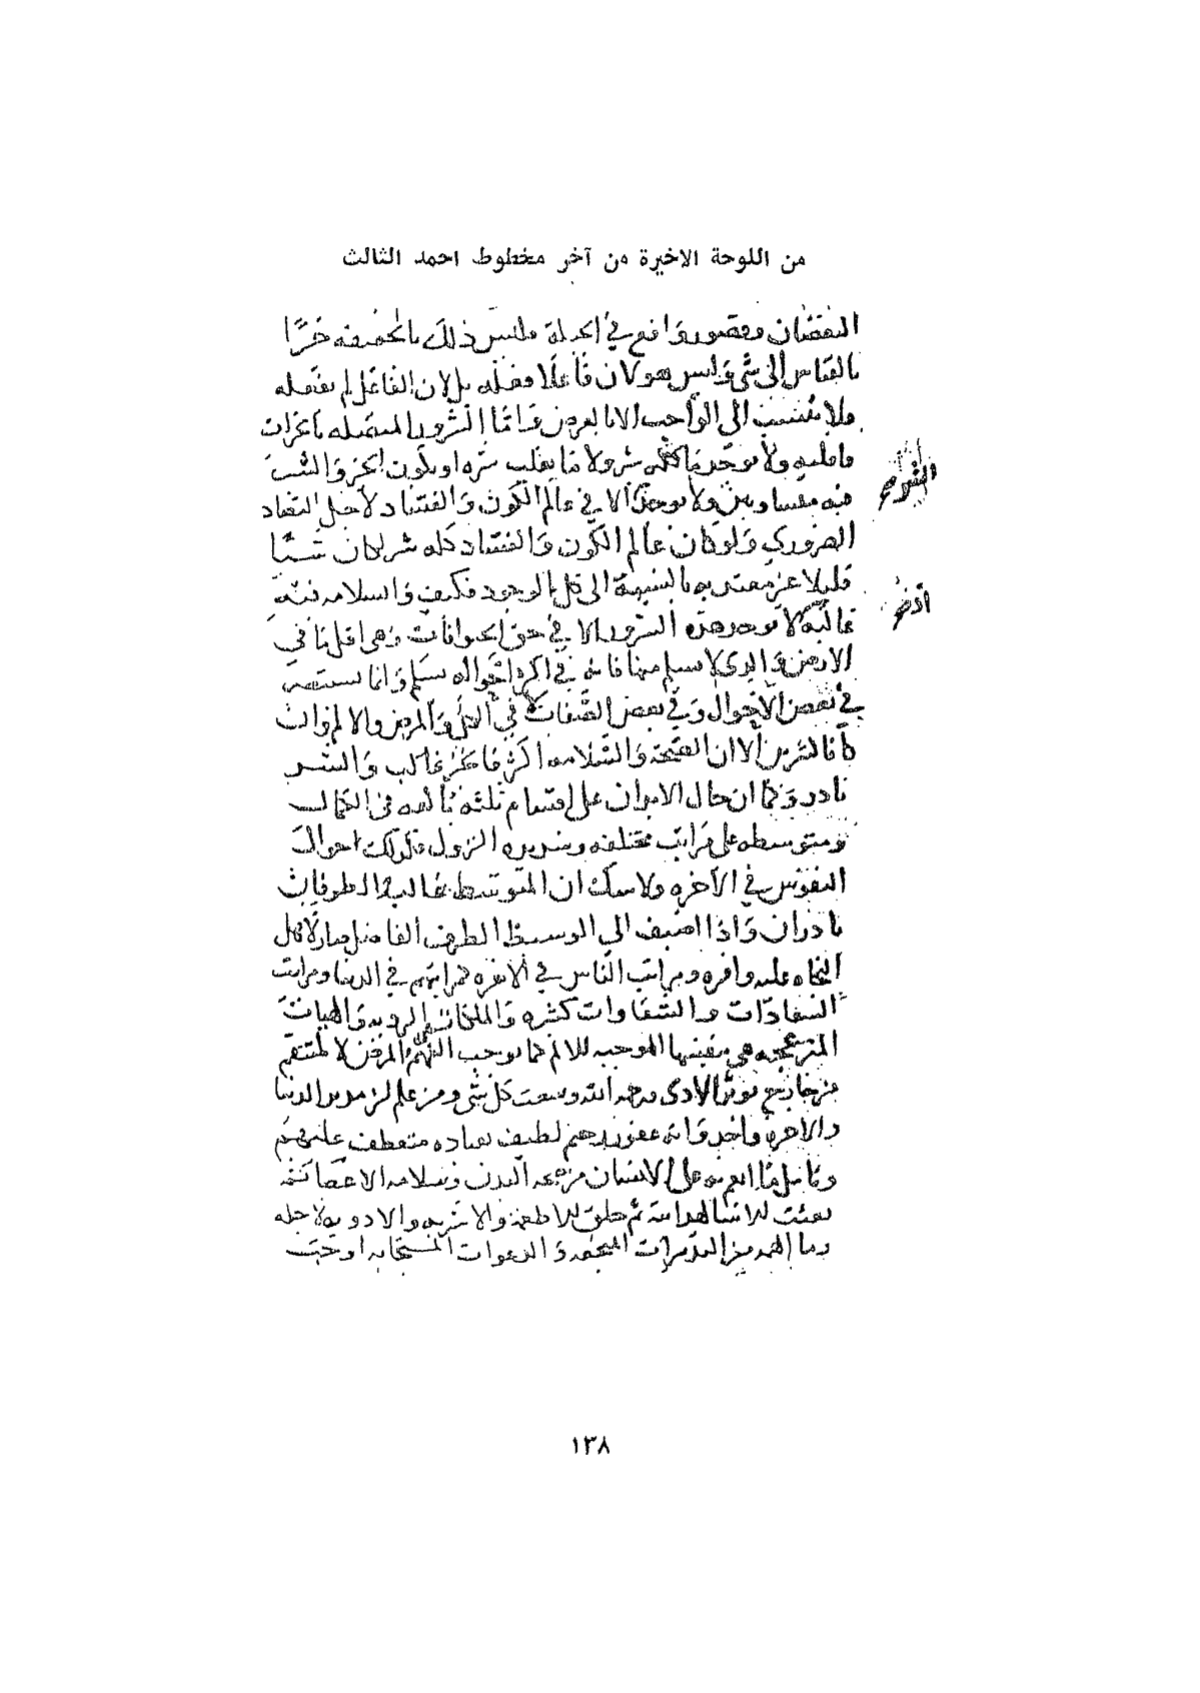 من اللوحة الاخيرة من آخر مخطوط احمد الثالث
النقصان وقصور واقع في الجبلة وليس ذلك بالحقيقة خيرًا
بالقياس الى شي وليس هو لان فاعلا فعله بل لان الفاعل لم يفعله
فلا ينسب الى الواجب الا بالعرض وامّا الشرور المتصلة بالخيرات
فاقليه ولا يوجد ما كله شر ولا ما يغلب شره او يكون الخير والشر
فيه متساويين ولا يوجد الا في عالم الكون والفساد لاجل التضاد
الضروري ولو كان عالم الكون والفساد كله شر لكان شيئًا
قليلا غير معتد به بالنسبة الى كل الوجود فكيف والسلامه فيه
غالبة لا توجد هذه الشرور الا في حق الحيوانات وهي اقل ما في
الارض والذي لا يسلم منها فانه في اكثر احواله يسلم وانما يستضر
في بعض الاحوال وفي بعض الصفات
الا ان الصحة والسلامه اكثر فالخير غالب والشر
نادر وكما ان حال الابدان على اقسام ثلثة بالغه في الكمال
ومتوسطه على مراتب مختلفه وشديده النزول فكذلك احوال
النفوس في الآخره ولا شك ان المتوسط غالب والطرفان
نادران واذا اضيف الى الوسط الطرف الفاضل صار لاهل
النجاه غلبه وافره ومراتب الناس في الاخره كمراتبهم في الدنيا ومراتب
السعادات والشقاوات كثيره والملكات الرديه والهيات
المزعجه هي بنفسها الموجبه للالم كما يوجب النهم المرض لا لمنتقم
من خارج يوثر الاذى ورحمه الله وسعت كل شي ومن علم ان مدبر الدنيا
والاخرة واحد وانه غفور رحيم لطيف بعباده متعطف عليهم
وتامل ما انعم به على الانسان من صحه البدن وسلامه الاعضا ثم
بعثت للانبيا لهدايته ثم خلق للاطعمة والاشربه والادويه لاجله
وما الهمه من التدبيرات والدعوات المستجابه اوجب
الشر
١٣٨